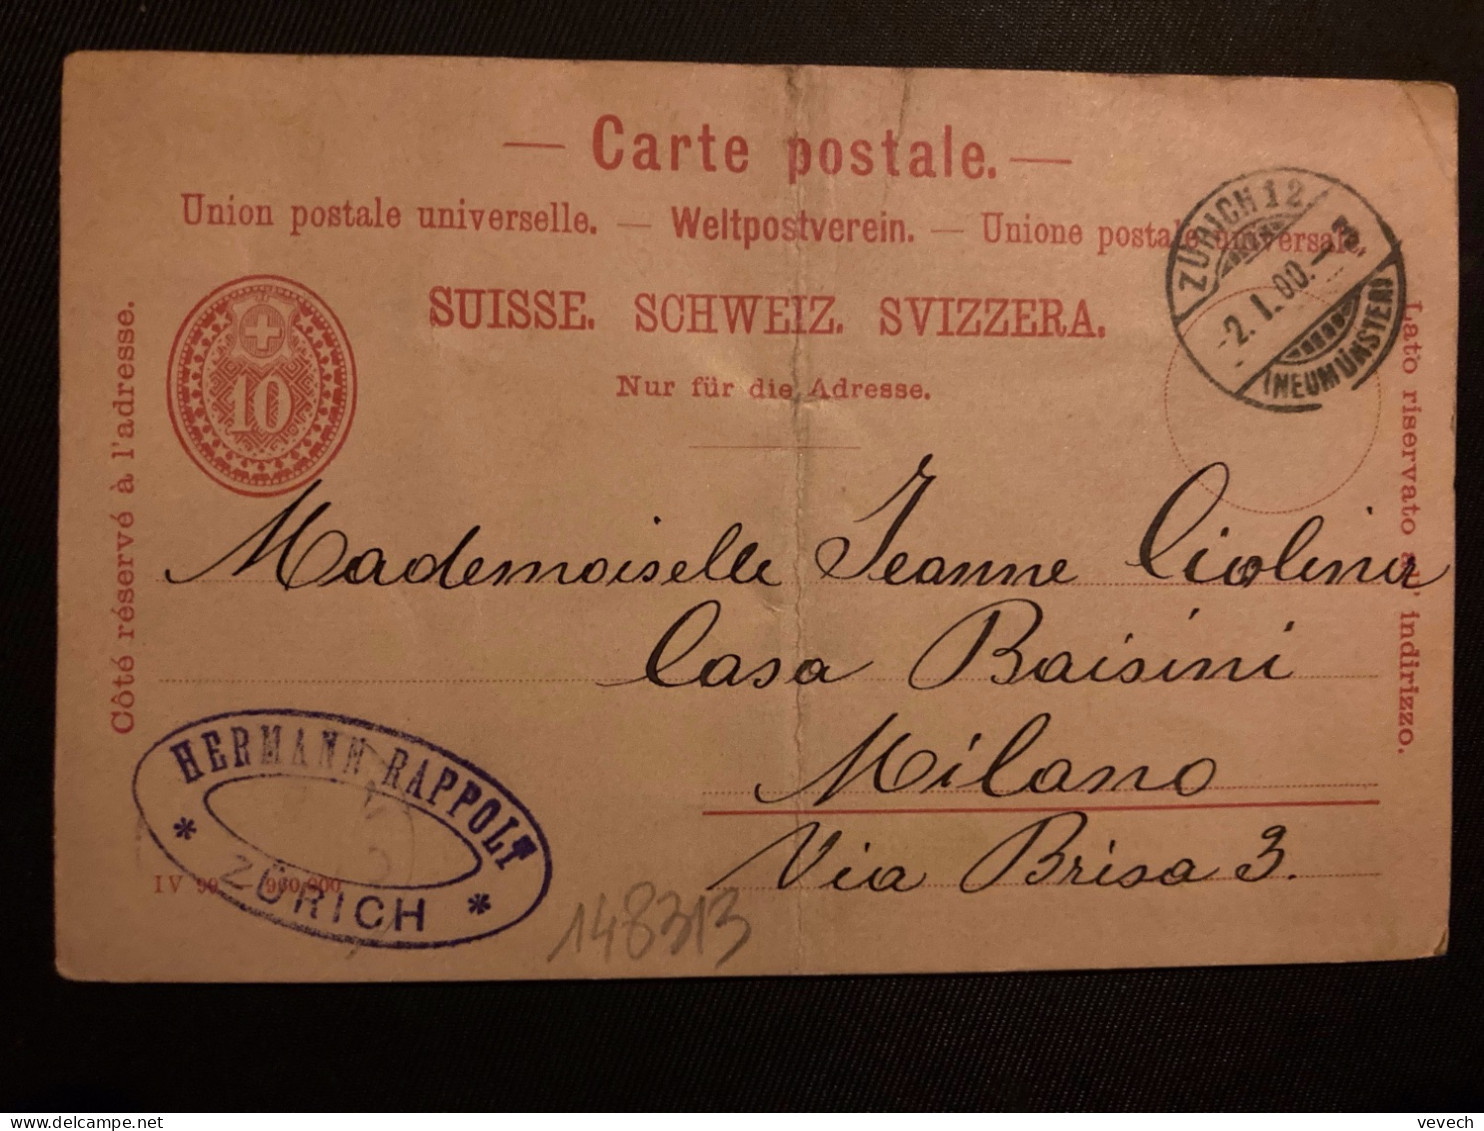 — Carte postale. —
Union postale universelle. — Weltpostverein. — Unione postale universale.
SUISSE. SCHWEIZ. SVIZZERA.
Nur für die Adresse.
10
Côté réservé à l'adresse.
Lato riservato all' indirizzo.
ZÜRICH 12
-2.I.00.-3
(NEUMÜNSTER)
Mademoiselle Jeanne Ciolina
Casa Baisini
Milano
Via Brisa 3.
HERMANN RAPPOLT
* ZÜRICH *
IV 99 960,000
148313
vevech